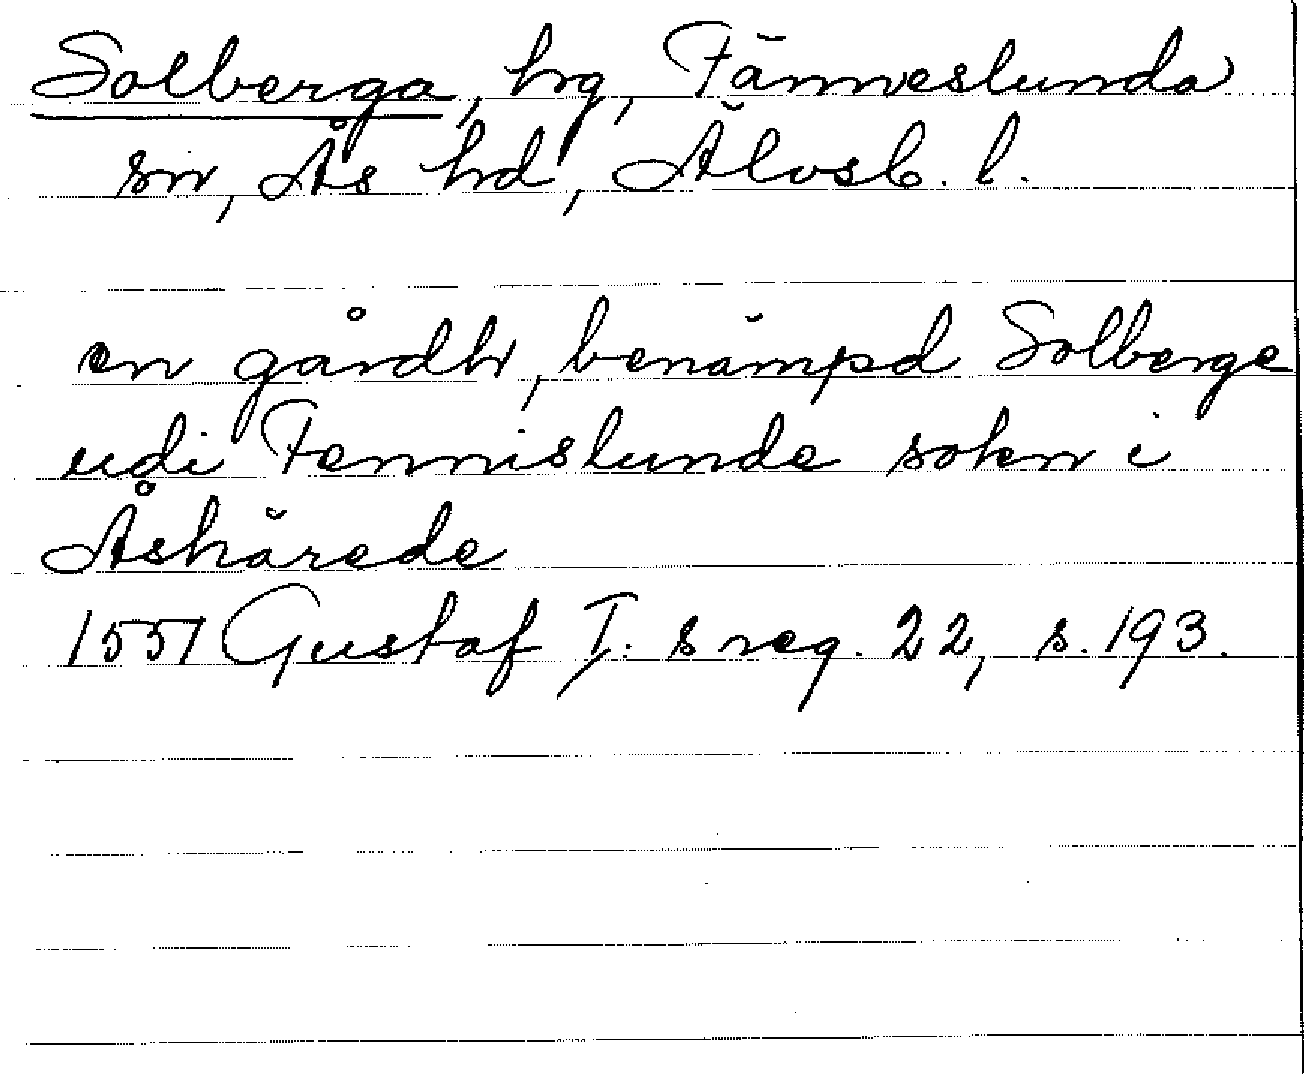 Solberga, hrg, Fänneslunda
sn, Ås hd, Älvsb. l.
en gårdh, benämpd Solberge
udi Fennislunde sokn i
Åshärede
1551 Gustaf I:s reg. 22, s. 193.